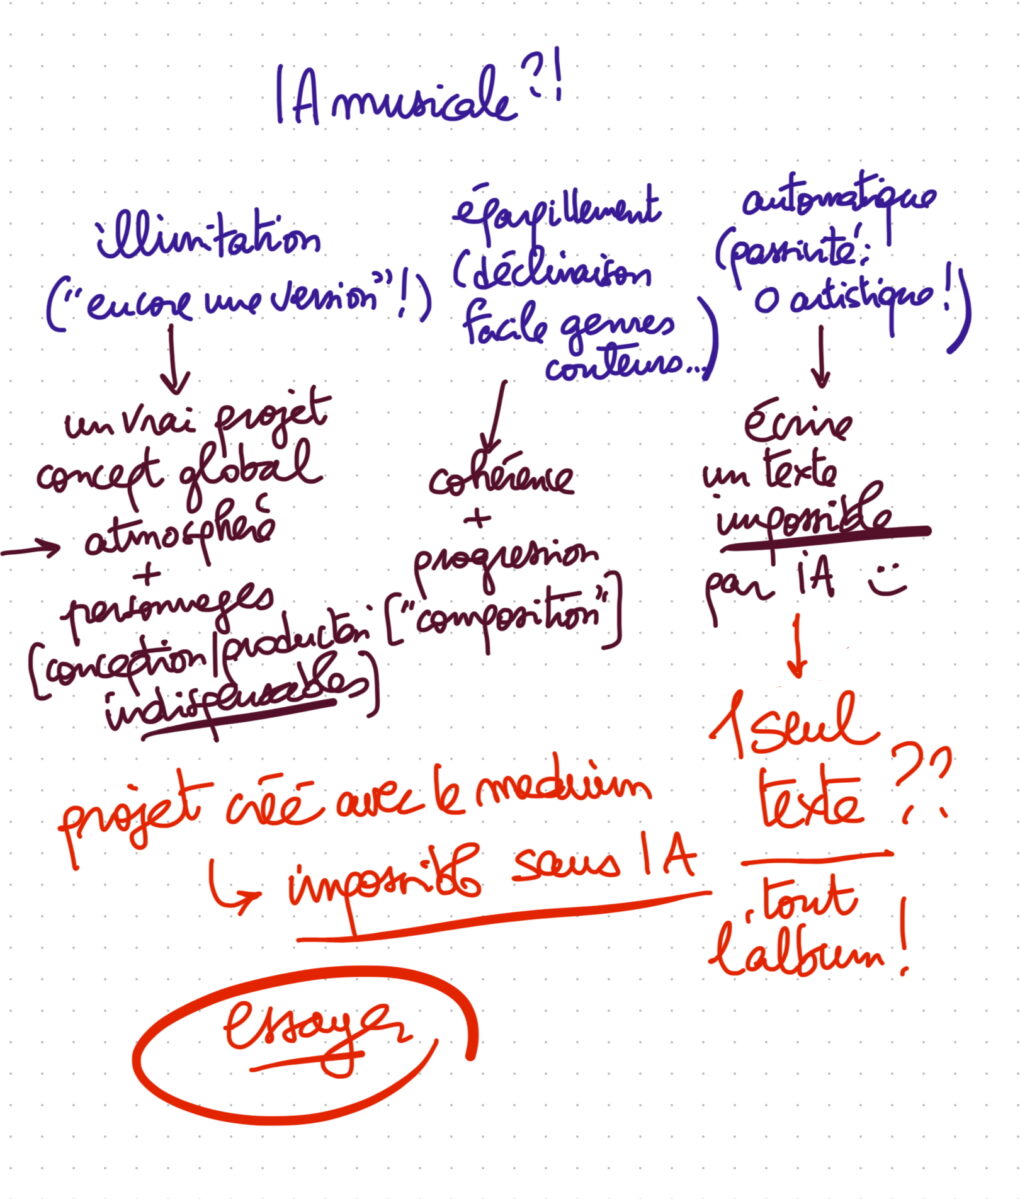 IA musicale ?!
illimitation
("encore une version"!)
éparpillement
(déclinaison
facile genres
conteurs...)
automatique
(passivité:
0 artistique!)
un vrai projet
concept global
→ atmosphère
+
personnages
[conception/production
indispensables]
cohérence
+
progression
["composition"]
écrire
un texte
impossible
par IA :)
1 seul
texte ??
tout
l'album!
projet créé avec le medium
↳ impossible sans IA
essayer